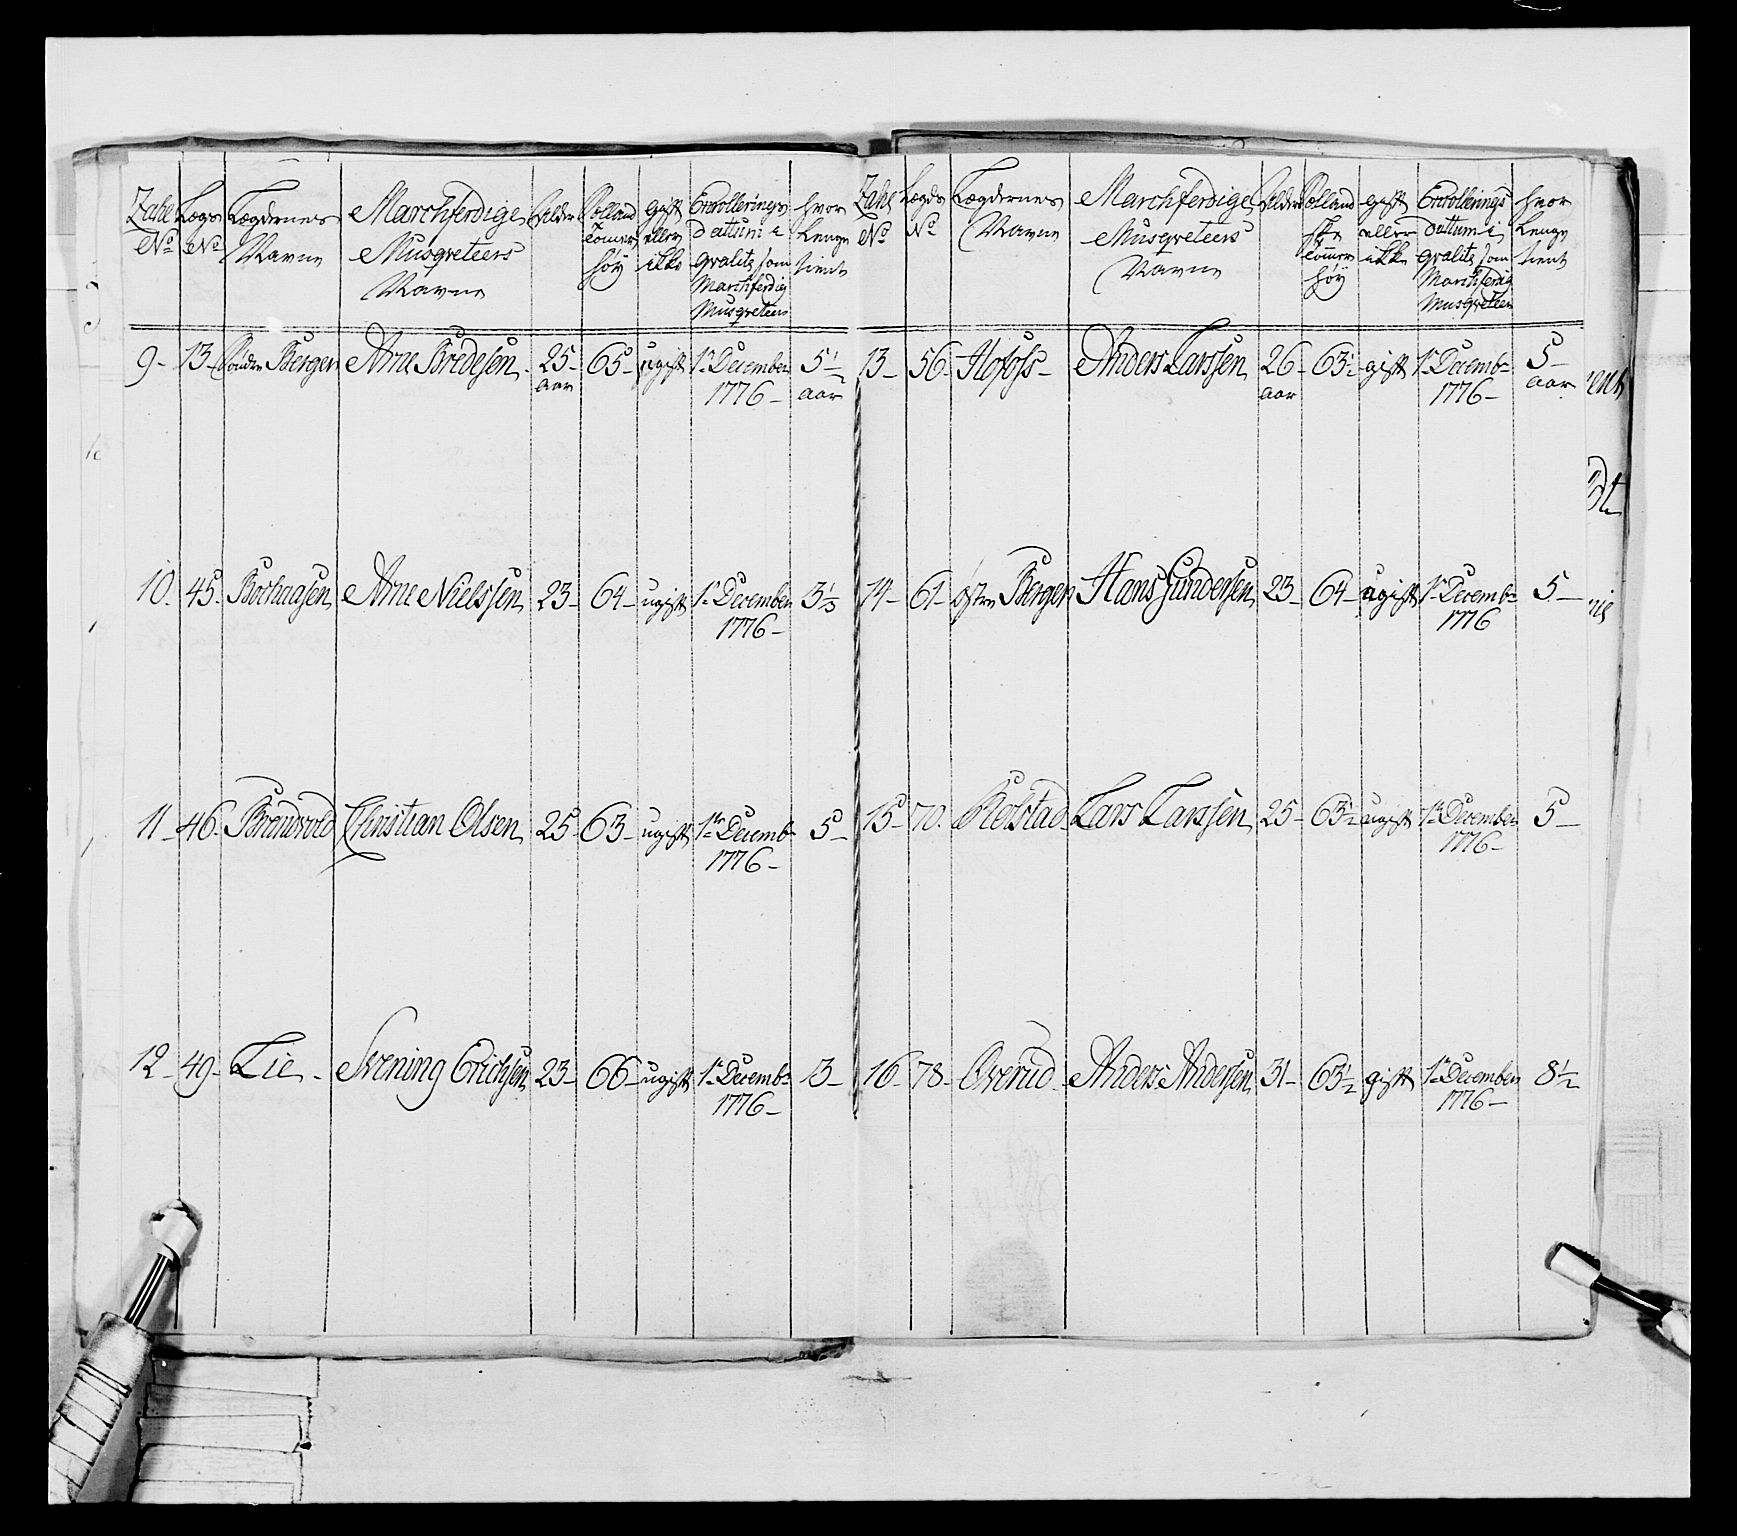 Zahl No | Lægs No | Lægdernes Navne | Marchferdige Musqveteers Navne | Alder | Solland Tomer höy | gift eller ikke | Enrollerings dattum i qvalite som Marchferdig Musqveteer | hvor lenge tient
9- | 13- | Söndre Bergen | Arne Bredesen. | 25- aar | 65- | ugift | 1te December 1776- | 5½ aar
10. | 45. | | Arne Nielssen | 23- | 64- | ugift | 1te December 1776- | 3⅓
11- | 46. | Brendvold | Christian Olsen | 25 | 63- | ugift | 1te Decembr 1776- | 5-
12- | 49- | Lie- | Svening Erichsen | 23- | 66- | ugift | 1te Decembr 1776- | 3-
Zahl No | Lægds No | Lægdernes Navne | Marchferdige Musqveteers Navne | Alder | Solland ske Tomer höy | gift eller ikke | Enrollerings dattum i qvalite som Marchferdig Musqveteer | hvor lenge tient
13- | 56- | Hofoss- | Anders Larssen | 26- aar | 63½ | gift | 1te Decembr 1776- | 5- aar
14- | 61- | östre Bergen | Hans Gundersen | 23- | 64- | ugift | 1te Decembr 1776 | 5-
15- | 70. | Rolstad- | Lars Larssen | 25- | 63½ | ugift | 1te December 1776- | 5-
16- | 78- | Overud- | Anders Andersen | 31- | 63½ | gift | 1te December 1776- | 8½